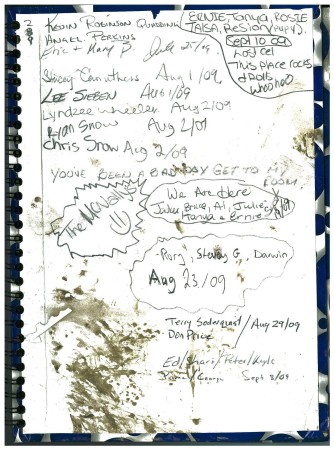 KEVIN ROBINSON
ANGEL PERKINS
Eric + Mary P. July 25/09
ERNIE, Tanya, ROSIE
Sept 10
This place rocks
Stacey Caruthers Aug 1/09
LEE SIEBEN Aug 1/09
Lyndzee Wheeler Aug 2/09
Ryan Snow Aug 2/09
Chris Snow Aug 2/09
YOU'VE BEEN A BAD BOY GET TO MY ROOM
The McNally's
We Are Here
Jake, Bruce, Al, Julie,
Tanya & Ernie
Rory, Stevey G, Darwin
Aug 23/09
Terry Soderquist / Aug 29/09
Don Price
Ed / Shari / Peter / Kayle
George Sept 8/09